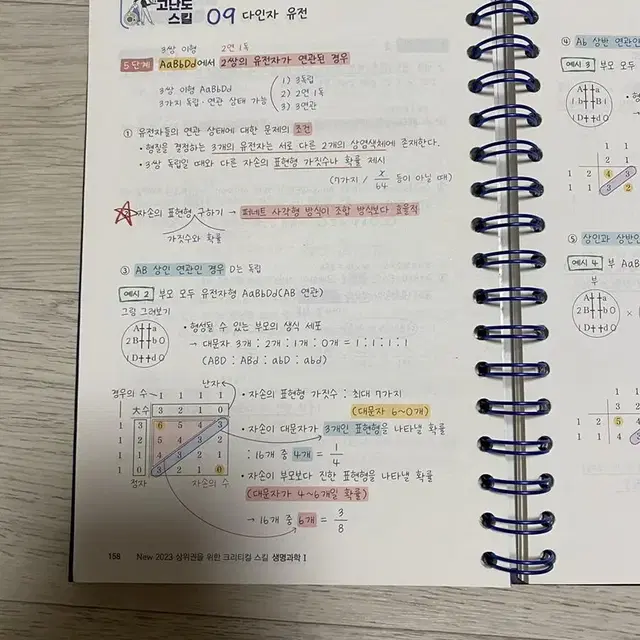 고난도
스킬 09 다인자 유전
3쌍 이형 2연 1독
5단계 AaBbDd에서 2쌍의 유전자가 연관된 경우
3쌍 이형 AaBbDd
3가지 독립·연관 상태 가능
1) 3독립
2) 2연 1독
3) 3연관
① 유전자들의 연관 상태에 대한 문제의 조건
• 형질을 결정하는 3개의 유전자는 서로 다른 2개의 상염색체에 존재한다.
• 3쌍 독립일 때와 다른 자손의 표현형 가짓수나 확률 제시
(7가지 / x/64 등이 아닐 때)
자손의 표현형 구하기 → 퍼네트 사각형 방식이 조합 방식보다 효율적
가짓수와 확률
③ AB 상인 연관인 경우 D는 독립
예시 2 부모 모두 유전자형 AaBbDd(AB 연관)
그림 그려보기
A a
2 B b 0
1 D d 0
• 형성될 수 있는 부모의 생식 세포
→ 대문자 3개 : 2개 : 1개 : 0개 = 1 : 1 : 1 : 1
(ABD : ABd : abD : abd)
난자
경우의 수 1 1 1 1
大수 3 2 1 0
1 3 6 5 4 3
1 2 5 4 3 2
1 1 4 3 2 1
1 0 3 2 1 0
정자 자손의 수
• 자손의 표현형 가짓수 : 최대 7가지
(대문자 6~0개)
• 자손이 대문자가 3개인 표현형을 나타낼 확률
: 16개 중 4개 = 1/4
• 자손이 부모보다 진한 표현형을 나타낼 확률
(대문자가 4~6개일 확률)
→ 16개 중 6개 = 3/8
158 New 2023 상위권을 위한 크리티컬 스킬 생명과학 I
④ Ab 상반 연관인
예시 3 부모 모두
A a
1 b B 1
1 D d 0
1 1
2 1
1 2 4 3
1 1 3 2
⑤ 상인과 상반인
예시 4 부 AaB
부
A a
2 B b 0
1 D d 0
×
1 1
3 2
1 2 5 4
1 1 4 3